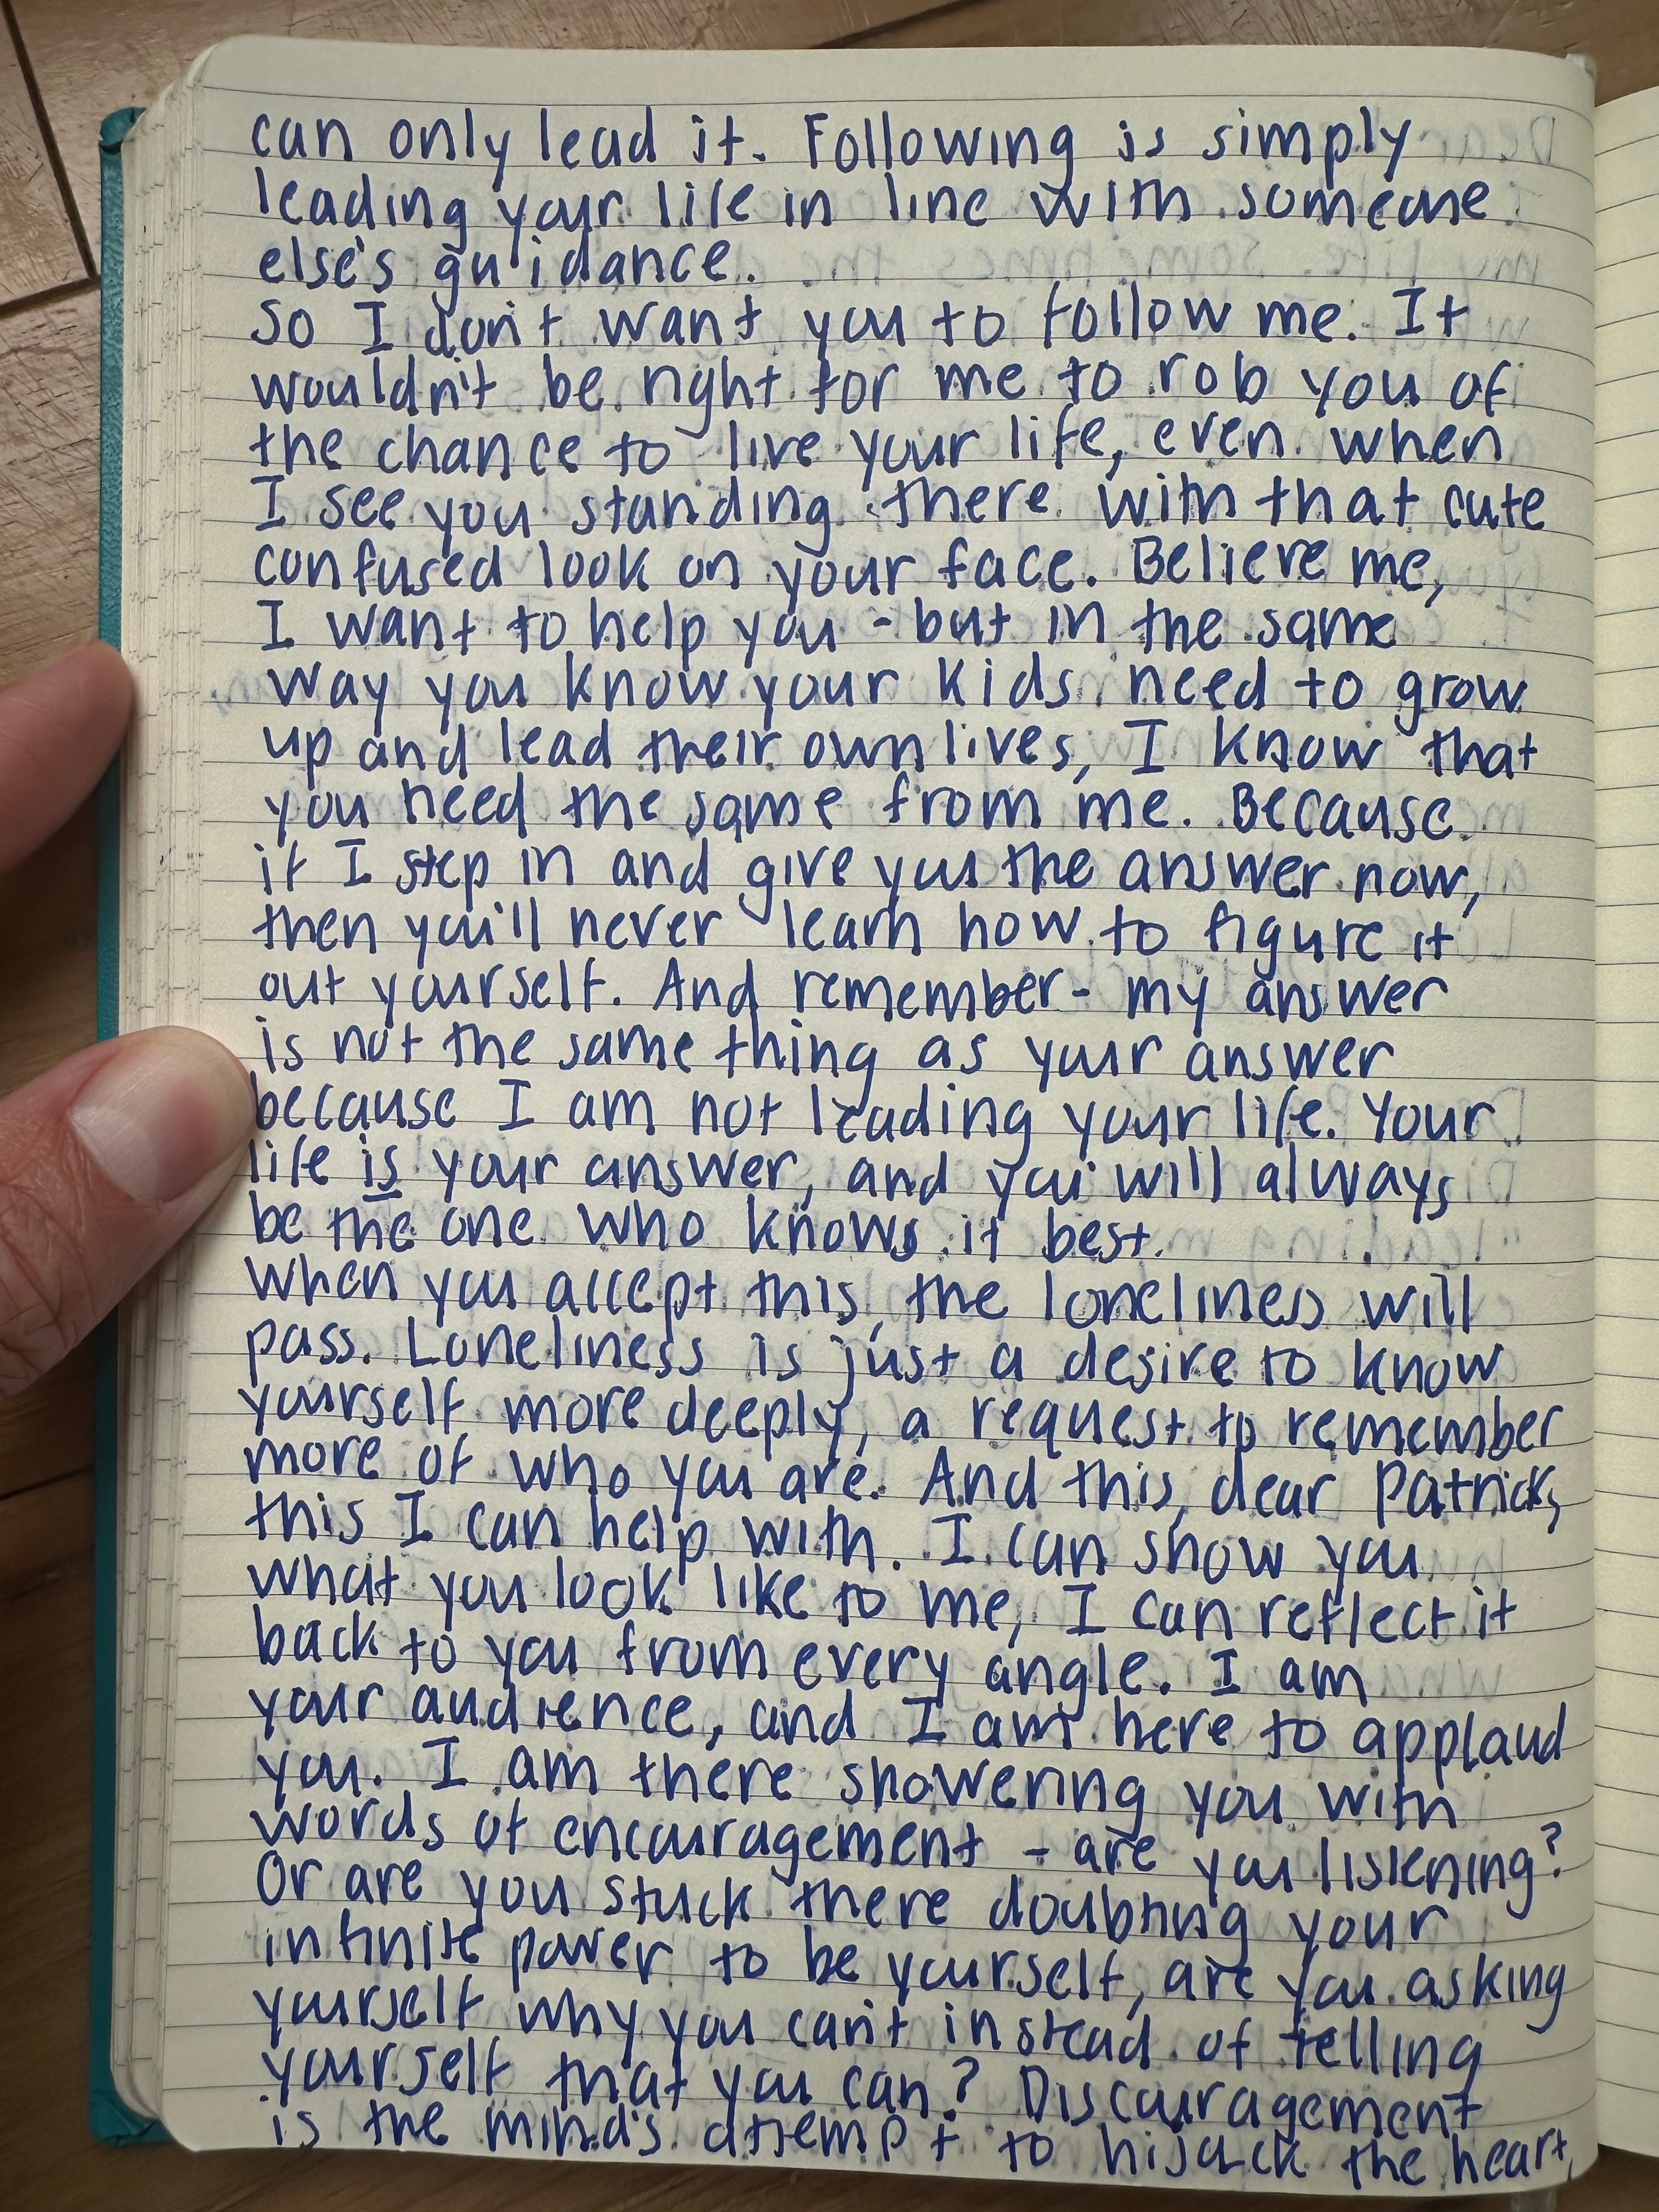 can only lead it. Following is simply
leading your life in line with someone
else's guidance.
So I don't want you to follow me. It
wouldn't be right for me to rob you of
the chance to live your life, even when
I see you standing there with that cute
confused look on your face. Believe me,
I want to help you - but in the same
way you know your kids need to grow
up and lead their own lives, I know that
you need the same from me. Because
if I step in and give you the answer now,
then you'll never learn how to figure it
out yourself. And remember - my answer
is not the same thing as your answer
because I am not leading your life. Your
life is your answer, and you will always
be the one who knows it best.
When you accept this, the loneliness will
pass. Loneliness is just a desire to know
yourself more deeply, a request to remember
more of who you are. And this, dear Patrick,
this I can help with. I can show you
what you look like to me, I can reflect it
back to you from every angle. I am
your audience, and I am here to applaud
you. I am there showering you with
words of encouragement - are you listening?
Or are you stuck there doubting your
infinite power to be yourself, are you asking
yourself why you can't instead of telling
yourself that you can? Discouragement
is the mind's attempt to hijack the heart,